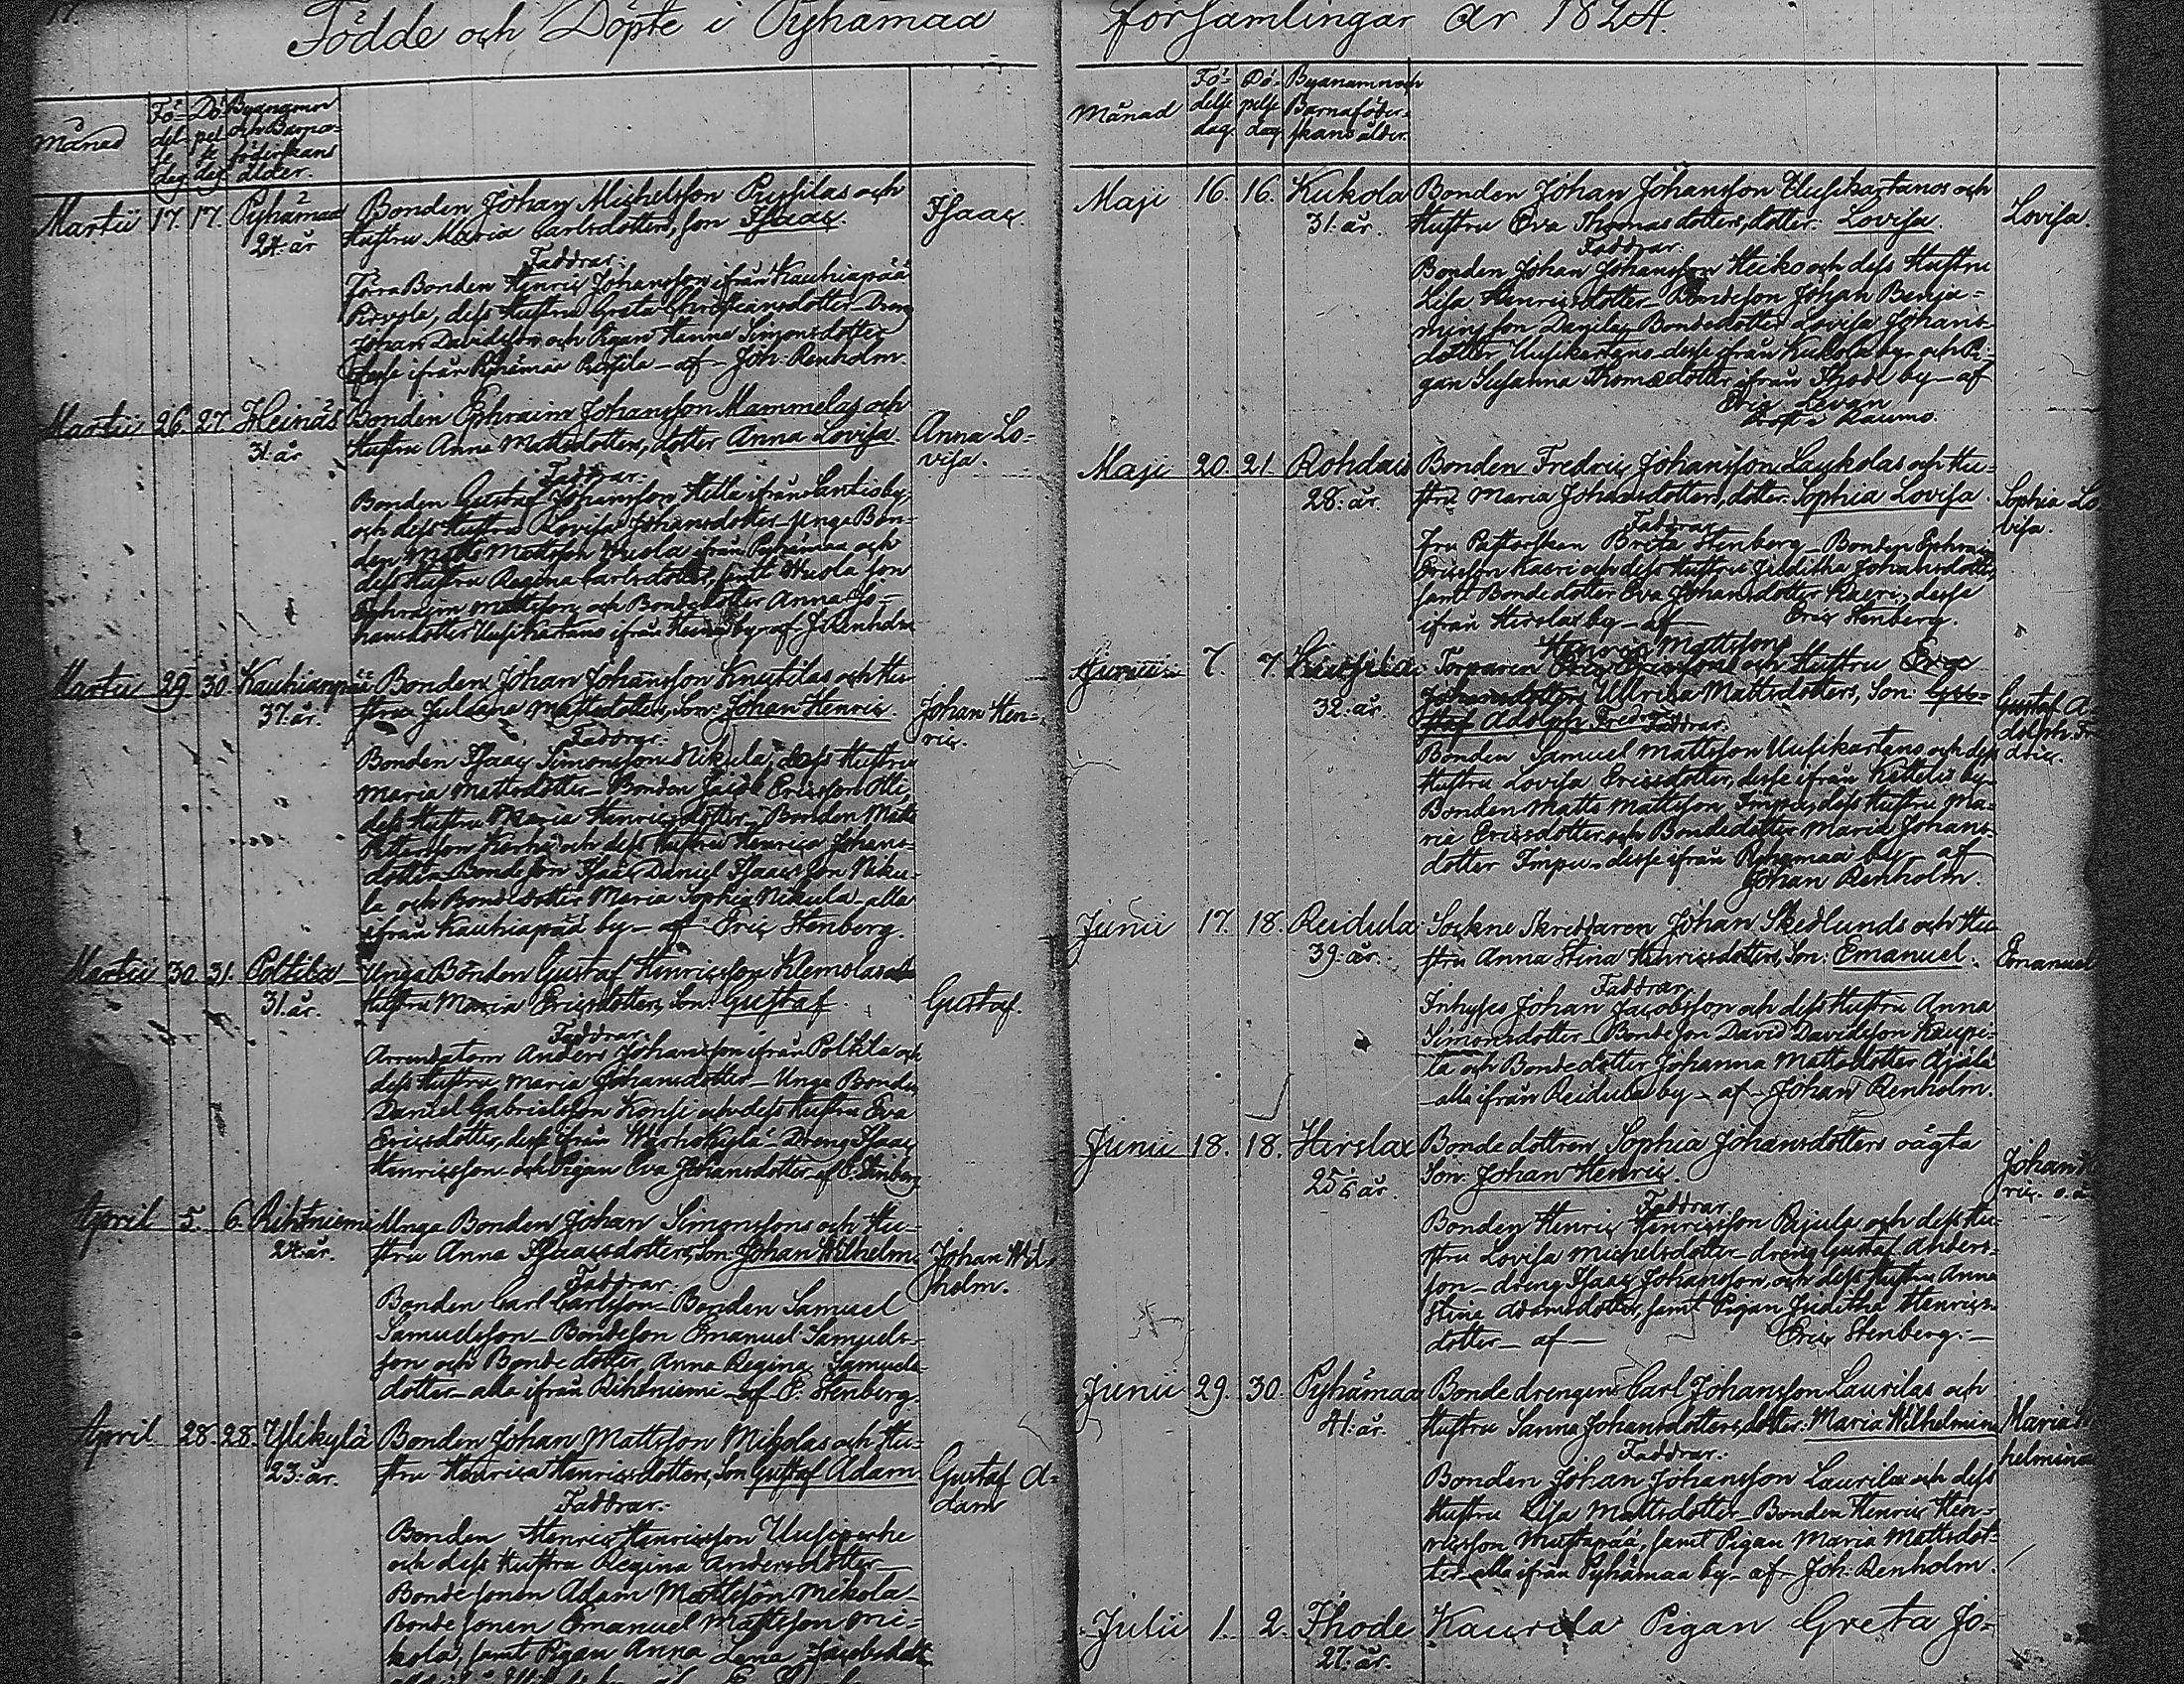 Födde och Döpte i Pyhämaa
Månad
Fö-
del-
se
dag
Dö
pel
se
dag
Byanamn
och Barna-
föderskans
ålder.
Martii 17. 17. Pyhämaa
24. år
Bonden Johan Michelsson Pussilas och
Hustru Maria Carlsdotters, son Isaac.
Isaac.
Faddrar:
Förra Bonden Henric Johansson ifrån Kauhiapää
dess Hustru Greta Christiansdotter Dreng
Johan Davidsson och Pigan Hanna Simonsdotter
desse ifrån Pyhämaa af Joh: Renholm.
Martii 26. 27. Heinäs
31. år
Bonden Ephraim Johansson Mammelas och
Hustru Anna Mattsdotters, dotter Anna Lovisa.
Anna Lo-
visa.
Faddrar:
Bonden Gustaf Johansson Hella ifrån Santis by,
och dess Hustru Lovisa Johansdotter Unga Bon-
den Matts Mattsson ifrån Pyhämaa och
dess Hustru Regina Carlsdotter, samt son
Ephraim Mattsson och Bondedotter Anna Jo-
hansdotter Uusikartano ifrån Heinäs by af J: Renholm
Martii 29 30. Kauhianpää
37. år.
Bonden Johan Johansson Knutilas och Hu-
stru Juliana Mattsdotters, Son: Johan Henric.
Johan Hen-
ric.
Faddrar:
Bonden Isaac Simonsson Nikula, dess Hustru
Maria Mattsdotter Bonden Jacob Ericsson Otti,
dess Hustru Maria Henricsdotter Bonden Matts
Petersson Karhu och dess Hustru Henrica Johans-
dotter Bondeson Daniel Isaacsson Niku-
la och Bondedotter Maria Sophia Nikula alla
ifrån Kauhiapää by af Eric Stenberg.
Martii 30. 31. Poltila
31. år.
Unga Bonden Gustaf Henricsson Klemolas och
Hustru Maria Ericsdotters, Son: Gustaf.
Gustaf.
Faddrar:
Arrendatorn Anders Johansson ifrån Poltila och
dess Hustru Maria Johansdotter Unga Bonden
Daniel Gabrielsson Konsi och dess Hustru Eva
Ericsdotter, desse ifrån Warhokylä Dreng Isaac
Henricsson och Pigan Eva Johansdotter af E. Stenberg
April 5. 6. Rihtniemi
24. år.
Unga Bonden Johan Simonssons och Hu-
stru Anna Isaacsdotters, Son: Johan Wilhelm.
Johan Wil-
helm.
Faddrar:
Bonden Carl Carlsson Bonden Samuel
Samuelsson Bondeson Emanuel Samuels-
son och Bondedotter Anna Regina Samuels-
dotter alla ifrån Rihtniemi af E. Stenberg.
April 28. 28. Ylikylä
23. år.
Bonden Johan Mattsson Mikolas och Hu-
stru Henrica Henricsdotters, Son Gustaf Adam
Gustaf A-
dam
Faddrar:
Bonden Henric Henricsson Uusiperhe
och dess Hustru Regina Andersdotter
Bondesonen Adam Mattsson Mikola
Bondesonen Emanuel Mattsson Mi-
kola, samt Pigan Anna Lena Jacobsdott.
Församlingar År 1824.
Månad
Fö-
delse
dag.
Dö-
pelse
dag
Byanamn och
Barnaföder-
skans ålder.
Maji 16. 16. Kukola
31. år.
Bonden Johan Johansson Uusikartanos och
Hustru Eva Thomasdotters, dotter: Lovisa.
Lovisa.
Faddrar:
Bonden Johan Johansson Heiko och dess Hustru
Lisa Henricsdotter Bondeson Johan Benja-
minsson Danila Bondedotter Lovisa Johans-
dotter Uusikartano desse ifrån Kukola by och Pi-
gan Susanna Thomædotter ifrån Ihode by af
Eric Levan
Raumo.
Maji 20. 21. Rohdais
28. år.
Bonden Fredric Johansson Laukolas och Hu-
stru Maria Johansdotters, dotter: Sophia Lovisa
Sophia Lo
visa.
Faddrar
Fru Pastorskan Breta Stenberg Bonden Ephraim
Ericsson Kaeri och dess Hustru Juditha Johansdotter,
samt Bondedotter Eva Johansdotter Kaeri, desse
ifrån Hirslax by af Eric Stenberg.
Junii 7. 7.
32. år.
Henric Mattssons
Torparen Eric Ericssons och Hustru Eva
Johansdotters Ullrica Mattsdotters, Son: Gu-
staf Adolph Fredric
Gustaf A
dolph Fre
dric.
Faddrar
Bonden Samuel Mattsson Uusikartano och dess
Hustru Lovisa Ericsdotter, desse ifrån Ketteli by
Bonden Matts Mattsson Impu, dess Hustru Ma-
ria Ericsdotter och Bondedotter Maria Johans-
dotter Impu desse ifrån Pyhämaa by af
Johan Renholm.
Junii 17. 18. Reidula
39. år.
Sockne Skreddaren Johan Skedlunds och Hu-
stru Anna Stina Henricsdotters, Son: Emanuel.
Emanuel
Faddrar
Inhyses Johan Jacobsson och dess Hustru Anna
Simonsdotter Bondeson David Davidsson Kaupi-
la och Bondedotter Johanna Mattsdotter Äijälä
alla ifrån Reidula by af Johan Renholm.
Junii 18. 18. Hirslax
25 år.
Bondedottren Sophia Johansdotters oägta
Son: Johan Henric.
Johan He
ric. o. ä
Faddrar
Bonden Henric Henricsson Pajula och dess Hu-
stru Lovisa Michelsdotter dreng Gustaf Anders-
son dreng Isaac Johansson och dess Hustru Anna
Stina Adamsdotter, samt Pigan Juditha Henrics-
dotter af Eric Stenberg.
Junii 29. 30. Pyhämaa
41. år.
Bondedrengen Carl Johansson Laurilas och
Hustru Sanna Johansdotters, dotter: Maria Wilhelmina
Maria Wi
helmina
Faddrar:
Bonden Johan Johansson Laurila och dess
Hustru Lisa Mattsdotter Bonden Henric Hen-
ricsson Mustapää, samt Pigan Maria Mattsdot-
ter alla ifrån Pyhämaa by af Joh: Renholm.
Julii 1. 2. Ihode
27. år.
Kaurila Pigan Greta Jo-